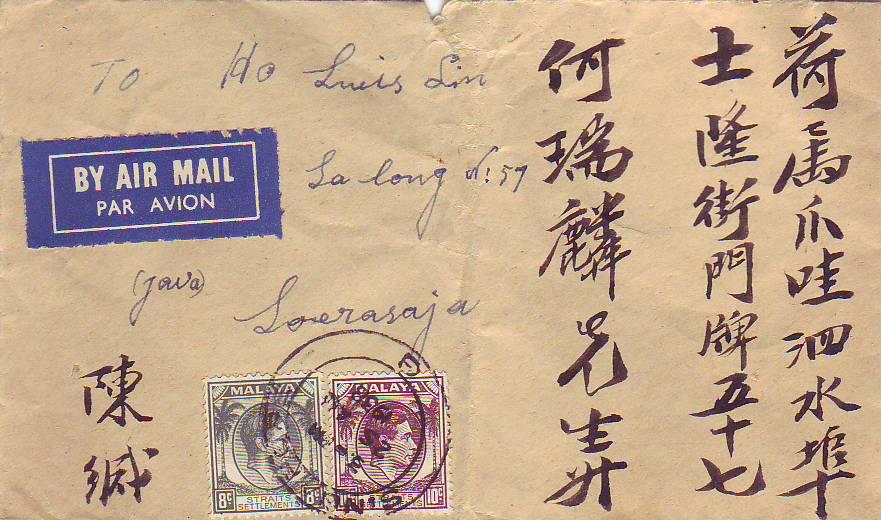 荷属爪哇泗水埠
士隆街門牌五十七
何瑞麟先生升
陳緘
TO Ho Luis Lin
Salong N: 57
(Java)
Soerasaja
BY AIR MAIL
PAR AVION
MALAYA
8c 8c
STRAITS
SETTLEMENTS
MALAYA
10c